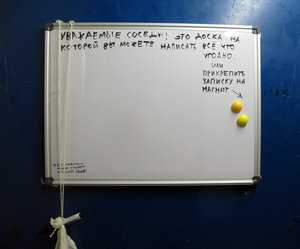 УВАЖАЕМЫЕ СОСЕДИ! ЭТО ДОСКА НА
КОТОРОЙ ВЫ МОЖЕТЕ НАПИСАТЬ ВСЁ ЧТО
УГОДНО.
ИЛИ
ПРИКРЕПИТЬ
ЗАПИСКУ НА
МАГНИТ